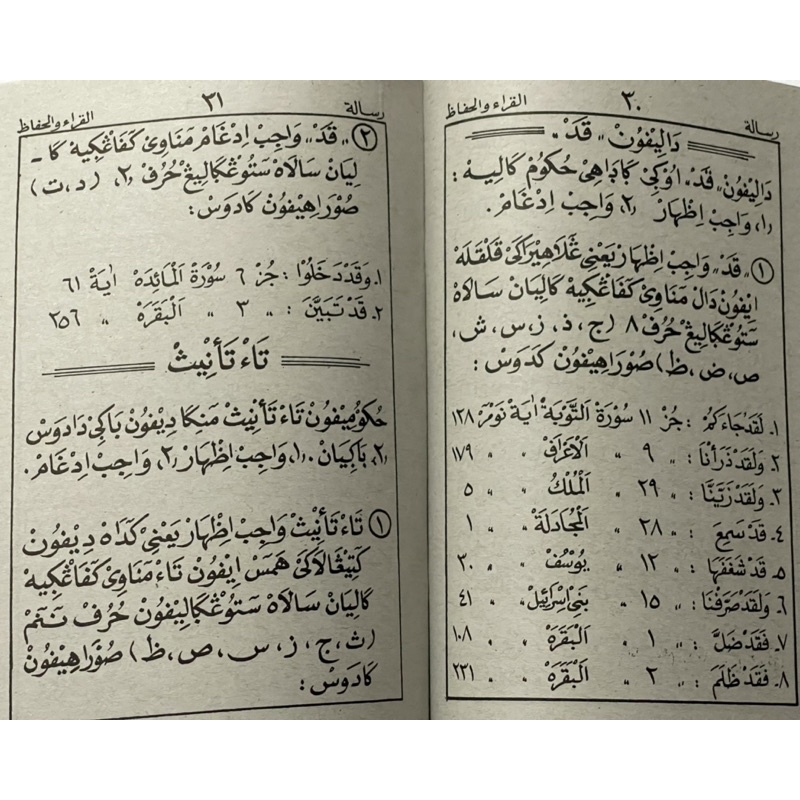 رسالة ٣٠ القراء والحفاظ
دَالِيفُونْ „ قَدْ „
دَالِيفُونْ „ قَدْ „ اُوْكِيْ كَادَاهِيْ حُكُومْ كَالِيهْ :
١، وَاجِبْ اِظْهَارْ ٢، وَاجِبْ اِدْغَامْ.
١ „ قَدْ „ وَاجِبْ اِظْهَارْ يَعْنِيْ ڠَلَاهِيْرَاكَيْ قَلْقَلَهْ
اِيْفُونْ دَالْ مَنَاوِيْ كَفَاڠْكِيهْ كَالِيَانْ سَالَاهْ
سَتُوڠْكَالِيڠْ حُرُفْ ٨ ( ج ، ذ ، ز، س ، ش ،
ص، ض ، ظ ) صُوْرَاهِيْفُونْ كَدَوسْ :
١ـ لَقَدْ جَاءَكُمْ : جُزْ ١١ سُوْرَةْ اَلتَّوْبَةْ اٰيَةْ نومر ١٢٨
٢ـ وَلَقَدْ ذَرَأْنَا : „ ٩ „ اَلْاَعْرَافْ „ „ ١٧٩
٣ـ وَلَقَدْ زَيَّنَّا : „ ٢٩ „ اَلْمُلْكُ „ „ ٥
٤ـ قَدْ سَمِعَ : „ ٢٨ „ اَلْمُجَادَلَةْ „ „ ١
٥ـ قَدْ شَغَفَهَا : „ ١٢ „ يُوْسُفْ „ „ ٣٠
٦ـ وَلَقَدْ صَرَّفْنَا : „ ١٥ „ بَنِيْ اِسْرَائِيْلْ „ „ ٤١
٧ـ فَقَدْ ضَلَّ : „ ١ „ اَلْبَقَرَهْ „ „ ١٠٨
٨ـ فَقَدْ ظَلَمَ : „ ٢ „ اَلْبَقَرَهْ „ „ ٢٣١
رسالة ٣١ القراء والحفاظ
٢ „ قَدْ „ وَاجِبْ اِدْغَامْ مَنَاوِيْ كَفَاڠْكِيهْ كَا ـ
لِيَانْ سَالَاهْ سَتُوڠْكَالِيڠْ حُرُفْ ٢، ( د ، ت )
صُوْرَاهِيْفُونْ كَادَوسْ :
١ـ وَقَدْ دَخَلُوْا : جُزْ ٦ سُوْرَةْ اَلْمَائِدَهْ اٰيَةْ ٦١
٢ـ قَدْ تَبَيَّنَ : „ ٣ „ اَلْبَقَرَهْ „ ٢٥٦
تَاءْ تَأْنِيْثْ
حُكُوْمِيْفُونْ تَاءْ تَأْنِيْثْ مَنِكَا دِيْفُونْ بَاكِيْ دَادَوسْ
٢، بَاكِيَانْ . ١، وَاجِبْ اِظْهَارْ ٢، وَاجِبْ اِدْغَامْ.
١ تَاءْ تَأْنِيْثْ وَاجِبْ اِظْهَارْ يَعْنِيْ كَدَاهْ دِيْفُونْ
كَتِيڠَالَاكَيْ هَمَسْ اِيْفُونْ تَاءْ مَنَاوِيْ كَفَاڠْكِيهْ
كَالِيَانْ سَالَاهْ سَتُوڠْكَالِيْفُونْ حُرُفْ نَنَمْ
( ث ، ج ، ز ، س ، ص ، ظ ) صُوْرَاهِيْفُونْ
كَادَوسْ :